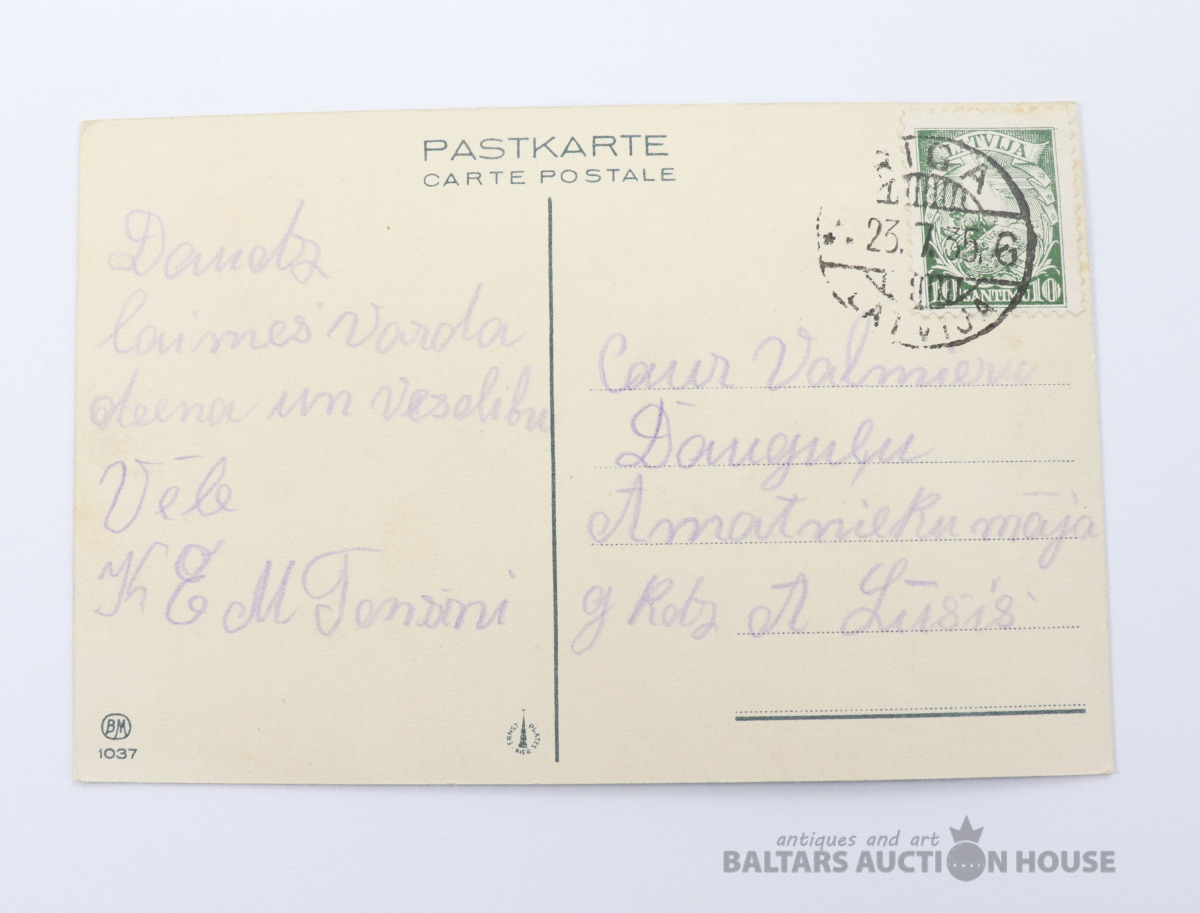 PASTKARTE
CARTE POSTALE
LATVIJA
10 SANTIMU 10
RIGA
23.7.35. 6
LATVIJA
Daudz
laimes Varda
deena un Veselibu
Vēle
K E M
Caur Valmieru
Dauguļu
Amatnieku māja
g Kdz A Lūsis
BM
1037
ERNST PLATES
RIGA
antiques and art
BALTARS AUCTION HOUSE